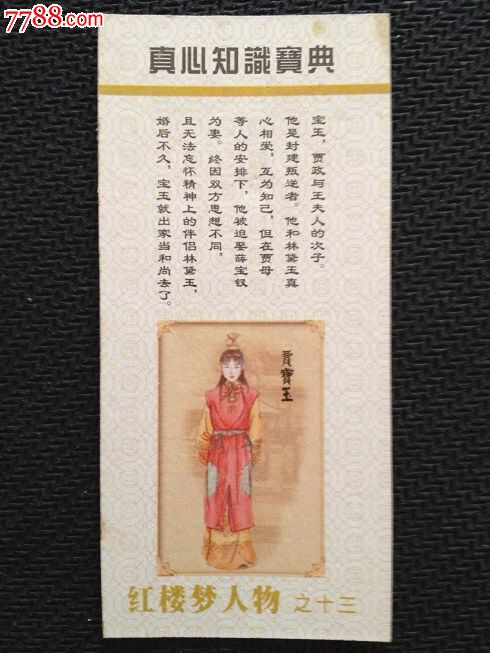 7788.com
真心知識寶典
宝玉,贾政与王夫人的次子。
他是封建叛逆者。他和林黛玉真
心相爱,互为知己,但在贾母
等人的安排下,他被迫娶薛宝钗
为妻。终因双方思想不同,
且无法忘怀精神上的伴侣林黛玉,
婚后不久,宝玉就出家当和尚去了。
賈寶玉
红楼梦人物 之十三